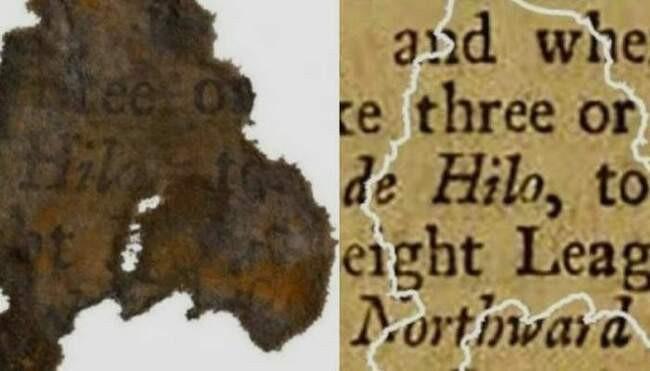 ree or
Hilo, to
ht
and whe
ke three or
de Hilo, to
eight Leag
Northward